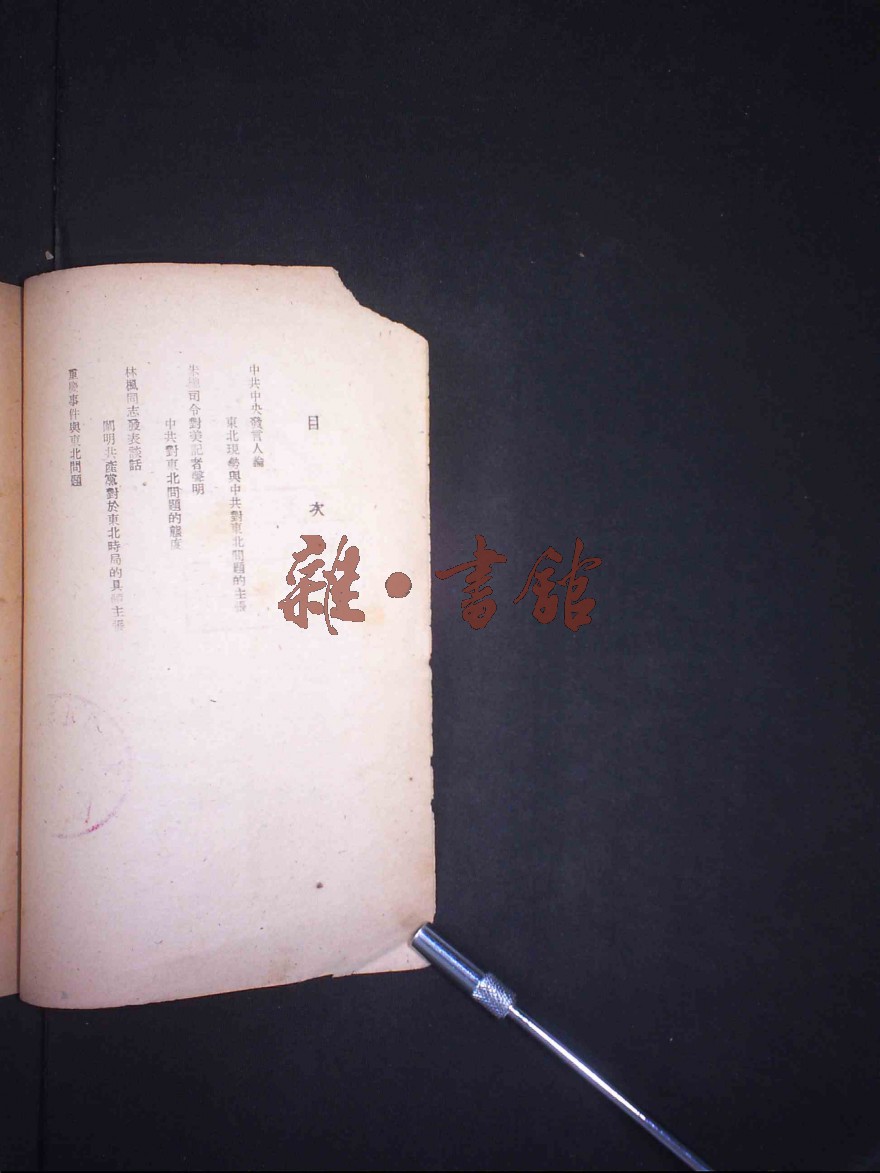 目 次
中共中央發言人論
東北現勢與中共對東北問題的主張
朱總司令對美記者聲明
中共對東北問題的態度
林楓同志發表談話
闡明共產黨對於東北時局的具體主張
重慶事件與東北問題
雜·書館